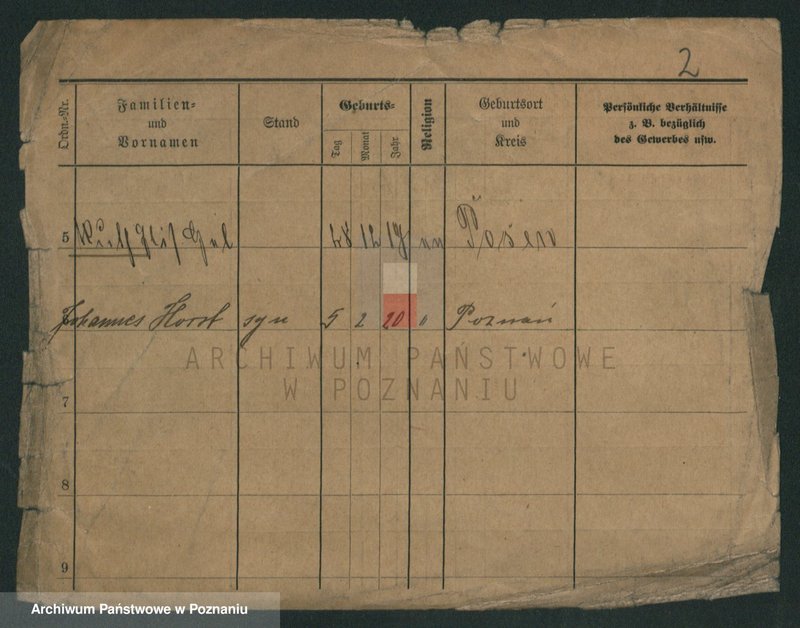 2
Ordn.-Nr.
Familien-
und
Vornamen
Stand
Geburts-
Tag
Monat
Jahr
Religion
Geburtsort
und
Kreis
Persönliche Verhältnisse
z. B. bezüglich
des Gewerbes usw.
5 12 Posen
Johannes Horst syn 5 2 20 " Poznań
ARCHIWUM PAŃSTWOWE
W POZNANIU
7
8
9
Archiwum Państwowe w Poznaniu